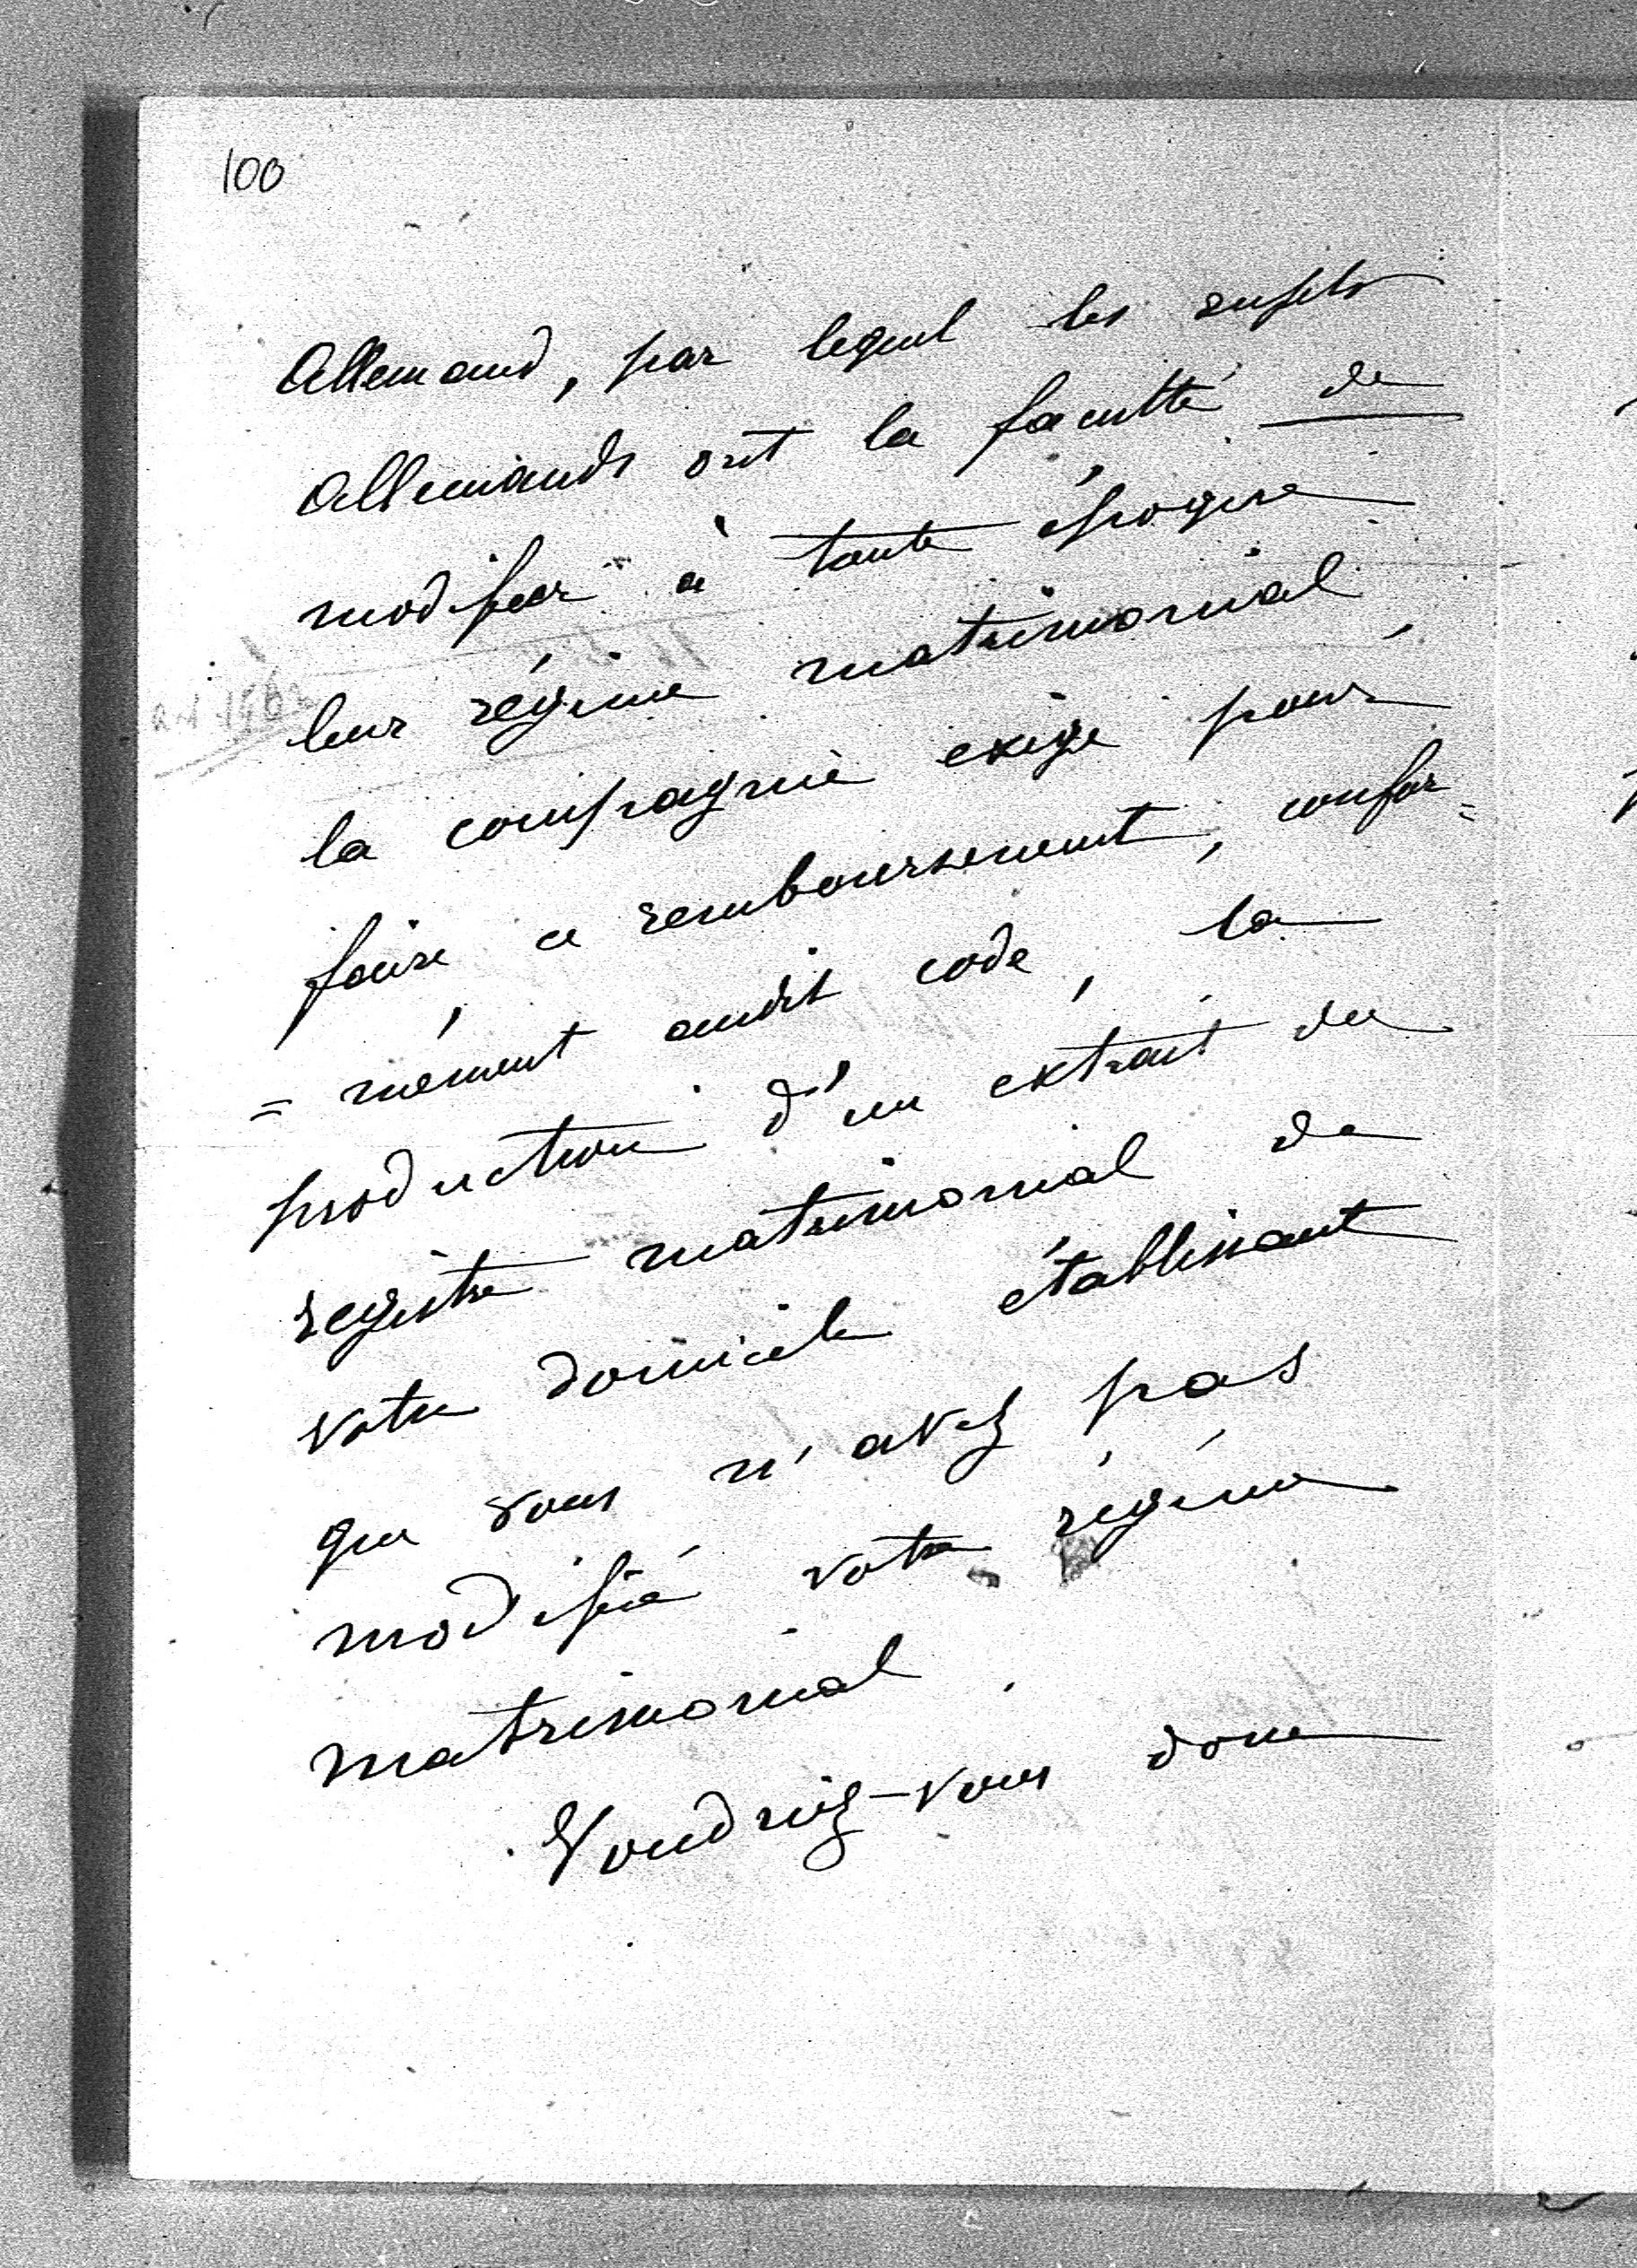 100
Allemand, par lequel les sujets
Allemands ont la faculté de
modifier à toute époque
leur régime matrimonial
la compagnie exige pour
faire ce remboursement, confor=
=mément audit code, la
production d'un extrait du
registre matrimonial de
votre domicile établissant
que vous n'avez pas
modifié votre régime
matrimonial.
Voudriez-vous donc